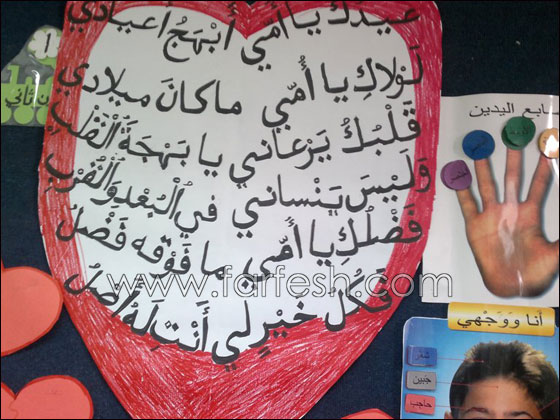 عيدك يا أمي أبهجُ أعيادي
لَولاكِ يا أُمّي ماكانَ ميلادي
قَلبُكُ يَرعاني يا بَهجَةَ القَلبِ
وَلَيسَ يَنساني في البُعدِ وَالقُربِ
فَضلُكِ يا أُمّي ما فَوقَه فَضلُ
فَكُلُّ خَيرٍ لي أَنتِ لَهُ أَصلُ
www.farfesh.com
1
ثاني
ابع اليدين
أنا وَوَجهي
شعر
جبين
حاجب